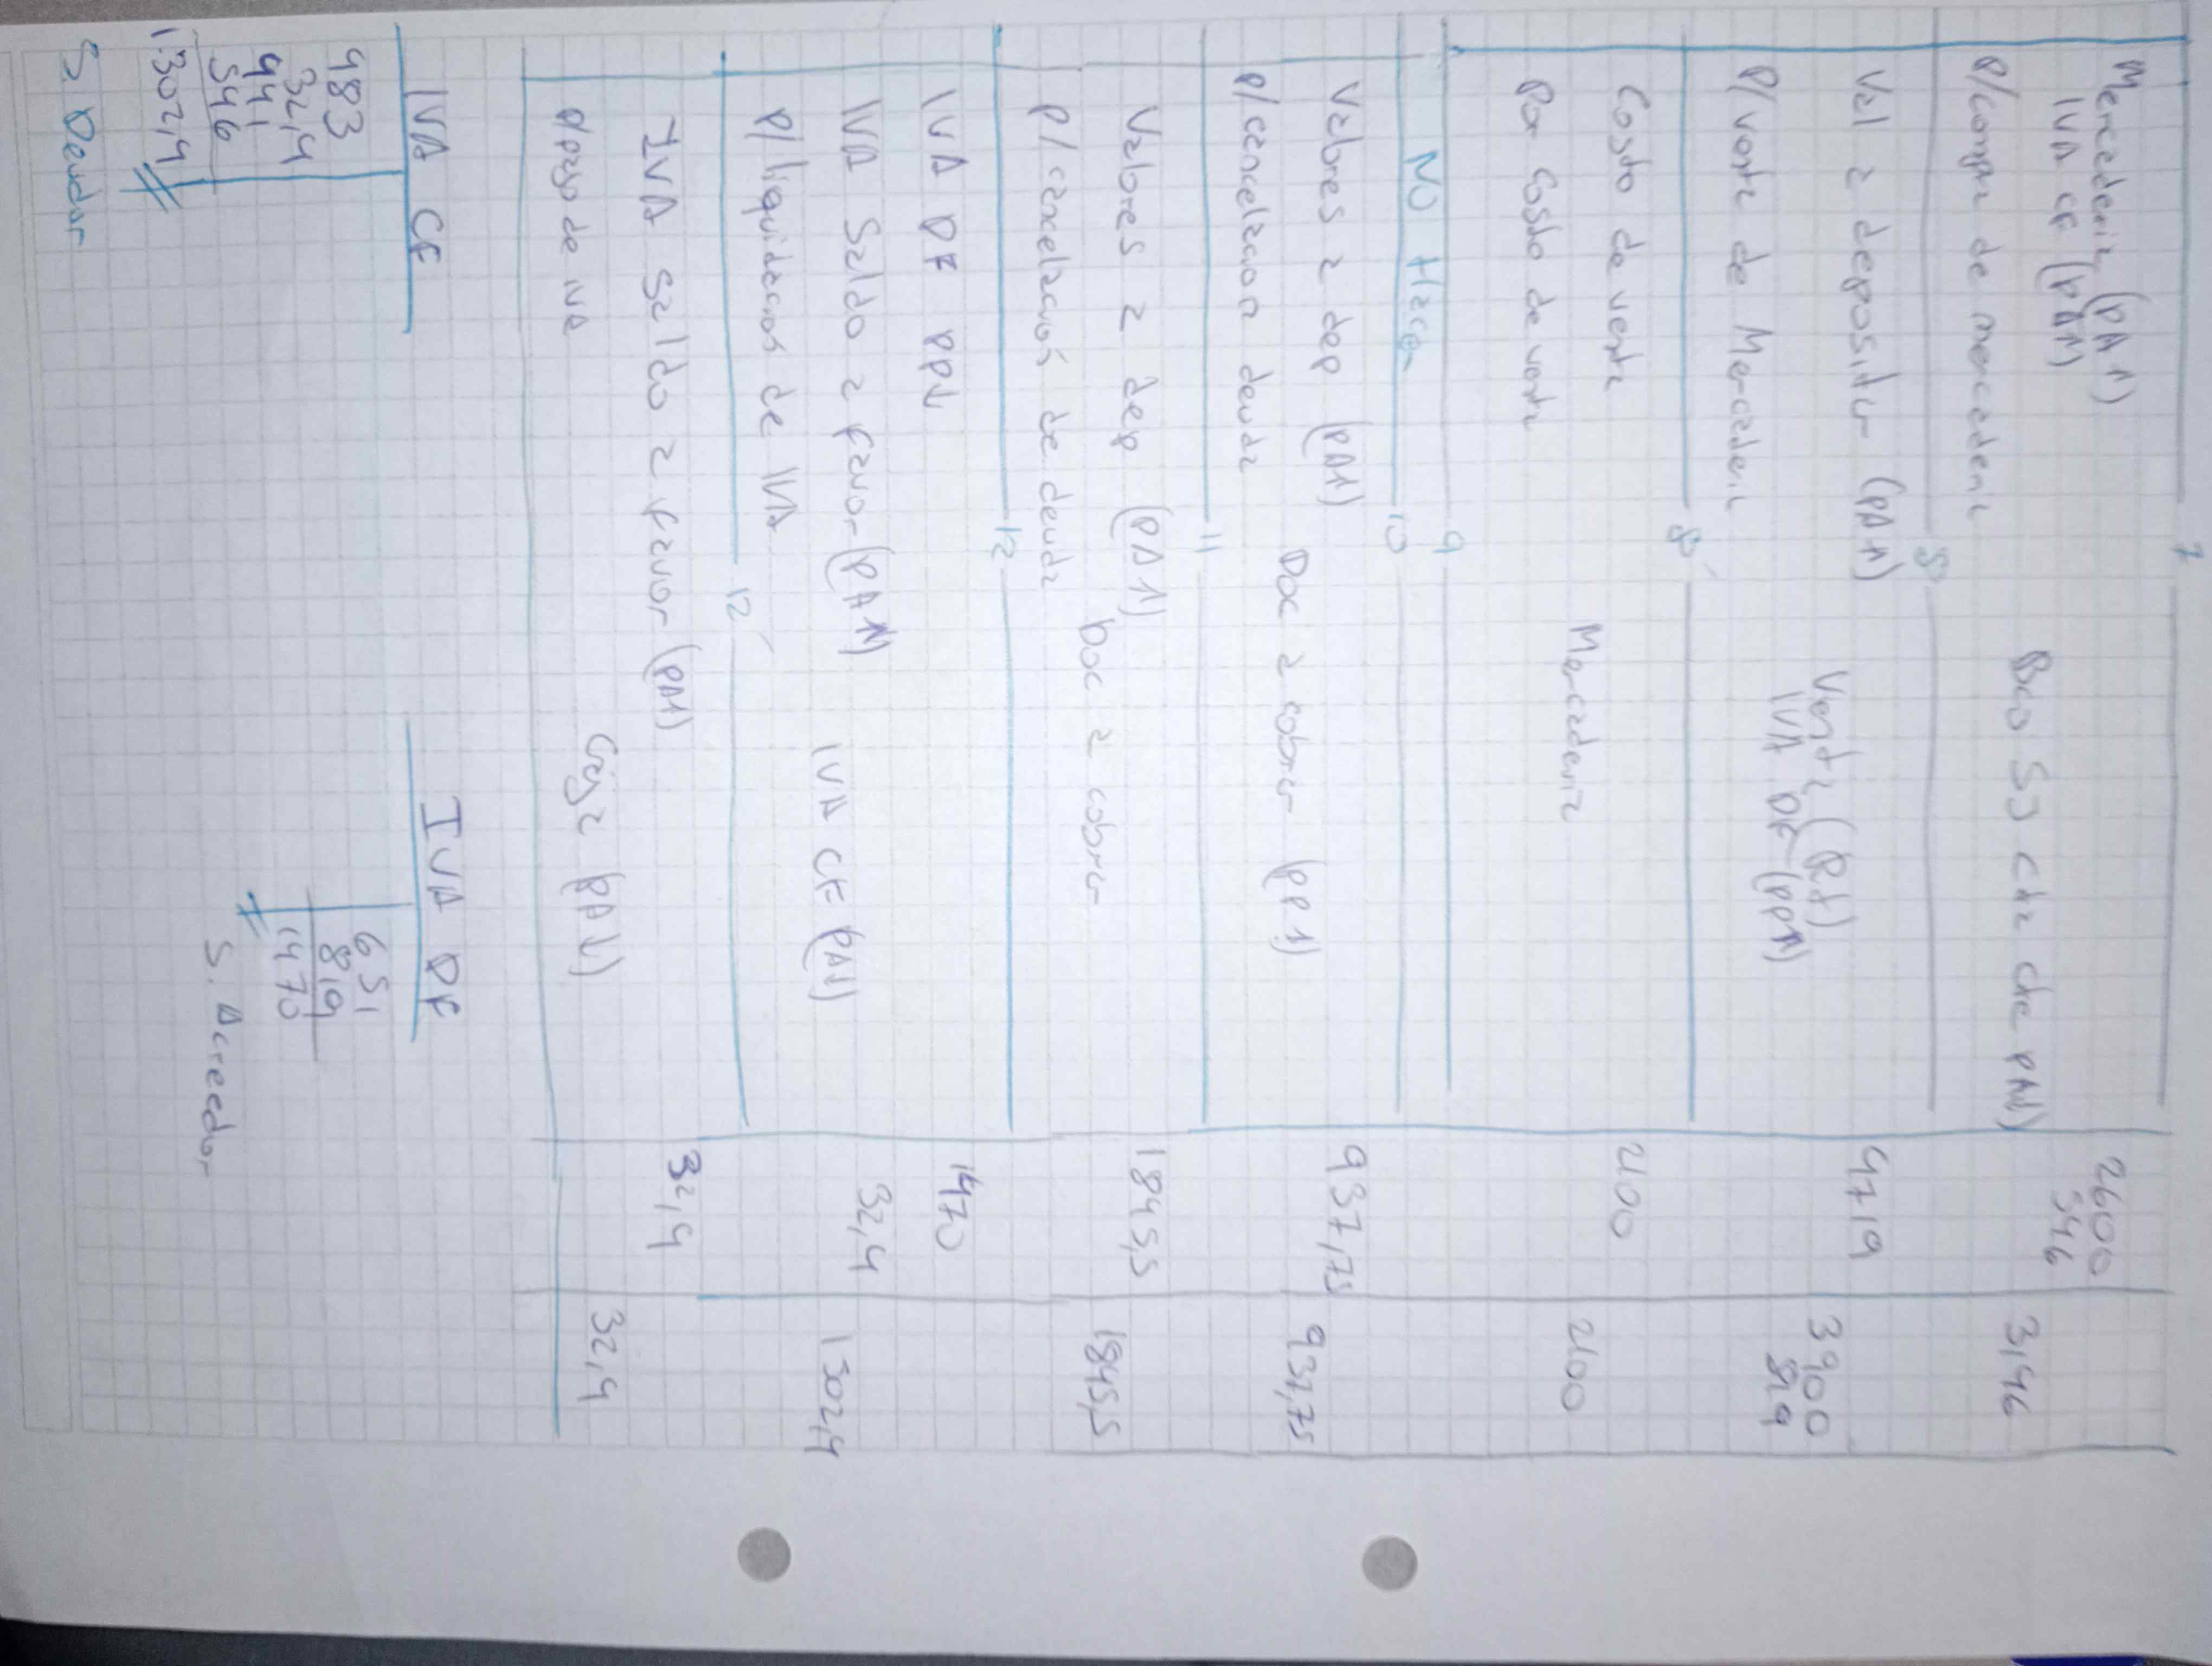 7
Mercaderia (PA 1) 2600
IVA CF (PA 1) 546
Bco SJ cta cte PA↓) 3146
P/compra de mercaderia
8
Val a depositar (PA 1) 4719
Venta (R+) 3900
IVA DF (PP1) 819
P/ venta de Mercaderia
8'
Costo de venta 2100
Mercaderia 2100
Por Costo de venta
9
NO Hacer
10
Valores a dep (PA1) 937,75
Doc a cobrar (PP1) 937,75
p/cancelacion deuda
11
Valores a dep (PA1) 1845,5
Doc a cobrar 1845,5
P/ cancelacion de deuda
12
IVA DF PP↓ 1470
IVA Saldo a favor (PA 1) 32,4
IVA CF PA↓) 1302,4
P/ liquidacion de IVA
12'
IVA Saldo a favor (PA1) 32,4
Caja PA↓) 32,4
p/pago de IVA
IVA CF
483
32,4
441
546
1302,4
S. Deudor
IVA DF
651
819
1470
S. Acreedor